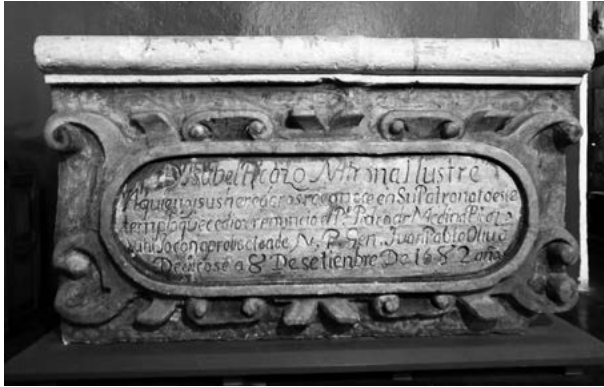 D Ysabel Picazo Matrona Ilustre
A quien y sus herederos reconoce en Su Patronato este
templo que cedio y renunció el Pe Baltasar Medina Picazo
su hijo con aprobacion de N. P. Gen. Juan Pablo Oliva
Dedicose a 8 De setienbre De 1682 años